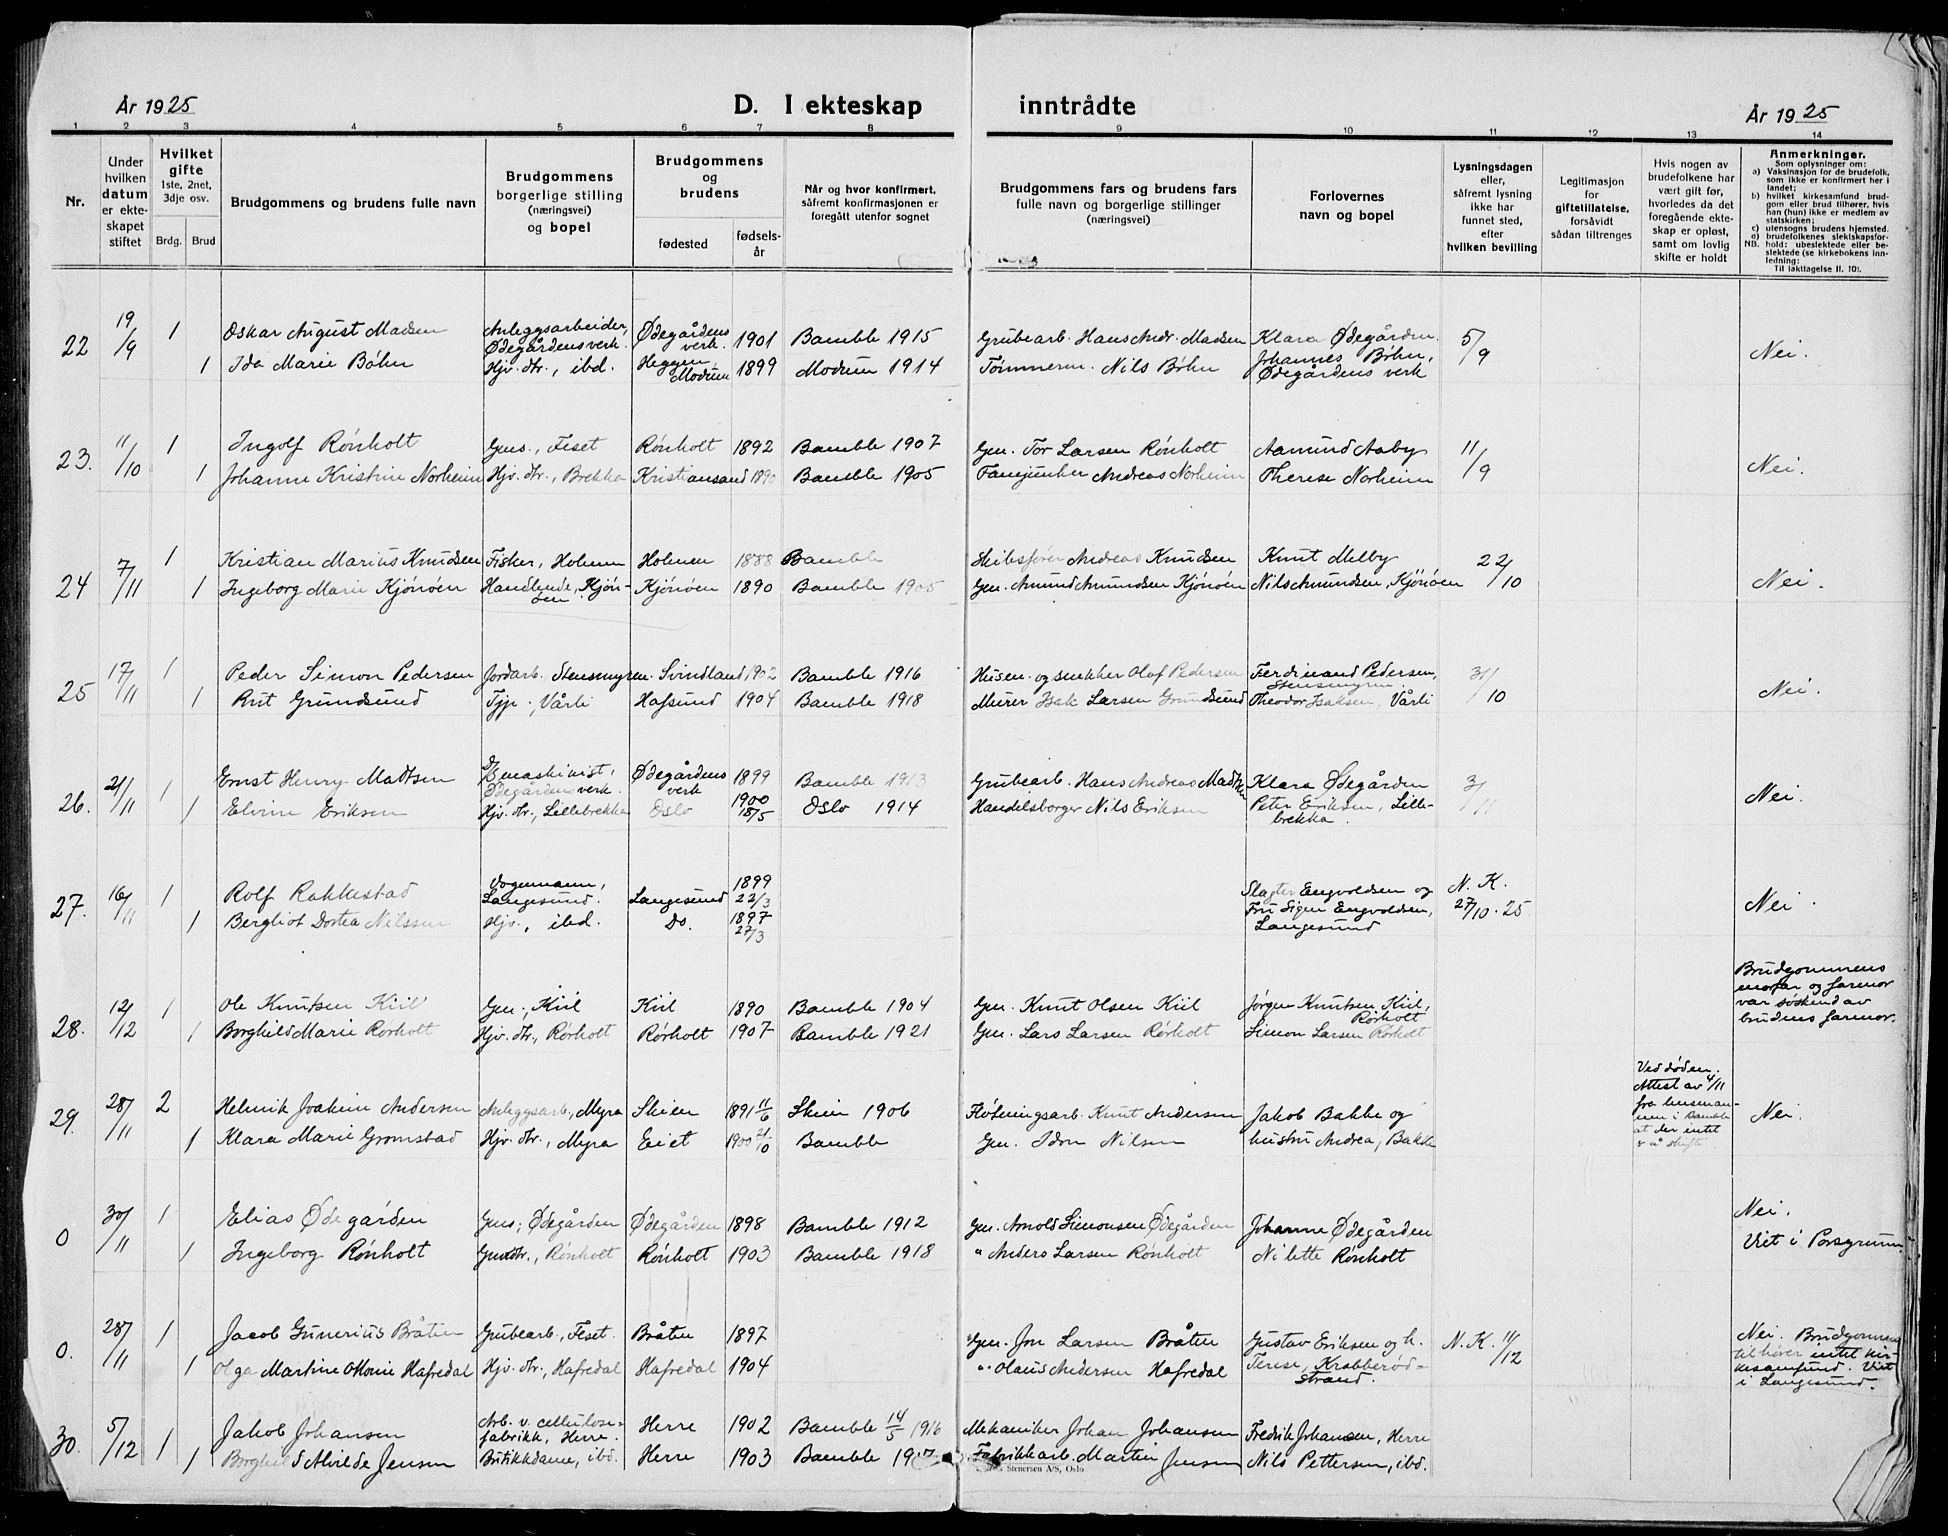 År 1925
D. I ekteskap inntrådte
År 1925
1 2 3 4 5 6 7 8 9 10 11 12 13 14
Nr.
Under
hvilken
datum
er ekte-
skapet
stiftet
Hvilket
gifte
1ste, 2net,
3dje osv.
Brdg. Brud
Brudgommens og brudens fulle navn
Brudgommens
borgerlige stilling
(næringsvei)
og bopel
Brudgommens
og
brudens
fødested
fødsels-
år
Når og hvor konfirmert,
såfremt konfirmasjonen er
foregått utenfor sognet
Brudgommens fars og brudens fars
fulle navn og borgerlige stillinger
(næringsvei)
Forlovernes
navn og bopel
Lysningsdagen
eller,
såfremt lysning
ikke har
funnet sted,
efter
hvilken bevilling
Legitimasjon
for
giftetillatelse,
forsåvidt
sådan tiltrenges
Hvis nogen av
brudefolkene har
vært gift før,
hvorledes da det
foregående ekte-
skap er opløst,
samt om lovlig
skifte er holdt
Anmerkninger.
Som oplysninger om:
a) Vaksinasjon for de brudefolk,
som ikke er konfirmert her i
landet;
b) hvilket kirkesamfund brud-
gom eller brud tilhører, hvis
han (hun) ikke er medlem av
statskirken;
c) utensogns brudens hjemsted.
d) brudefolkenes slektskapsfor-
NB. hold: ubeslektede eller be-
slektede (se kirkebokens inn-
ledning:
Til iakttagelse II. 10).
22 19/9 1 Oskar August Madsen Anleggsarbeider, Ødegårdensverk. Ødegårdens verk. 1901 Bamble 1915 Grubearb. Hans Andr. Madsen Klara Ødegården 5/9 Nei.
1 Ida Marie Bøhn Hjv. dtr., ibd. Heggen, Modum 1899 Modum 1914 Tømmerm. Nils Bøhn Johannes Bøhn, Ødegårdens verk
23. 11/10 1 Ingolf Rønholt Gms., Feset Rønholt 1892 Bamble 1907 Gm. Tor Larsen Rønholt Aamund Aaby 11/9 Nei.
1 Johanne Kristine Norheim Hjv. dtr., Brekka Kristiansand 1890 Bamble 1905 Fanejunker Andreas Norheim Therese Norheim
24 7/11 1 Kristian Marius Knudsen Fisker, Holmen Holmen 1888 Bamble Skibsfører Andreas Knudsen Knut Melby 22/10 Nei.
1 Ingeborg Marie Kjønøen Handlende, Kjøn-øen Kjønøen 1890 Bamble 1905 Gm. Amund Amundsen Kjønøen Nils Amundsen, Kjønøen
25 17/11 1 Peder Simon Pedersen Jordarb., Stensmyren. Svindland 1902 Bamble 1916 Husm. og snekker Olaf Pedersen Ferdinand Pedersen, Stensmyren. 31/10 Nei.
1 Rut Grundsund Tjp., Vårli Hafsund 1904 Bamble 1918 Murer Isak Larsen Grundsund Theodor Isaksen, Vårli
26. 21/11 1 Ernst Henry Madtsen maskinist, Ødegårdensverk. Ødegårdens verk 1899 Bamble 1913 Grubearb. Hans Andreas Madtsen Klara Ødegården 3/11 Nei.
1 Elvine Eriksen Hjv. dtr., Lillebrekka Oslo 1900 18/5 Oslo 1914 Handelsborger Nils Eriksen Peter Eriksen, Lille-brekka.
27. 16/11 1 Rolf Rakkestad Vognmann, Langesund. Langesund 1899 22/3 Slagter Engvoldsen og N. K. 27/10.25 Nei.
1 Bergliot Dortea Nilssen Hjv., ibd. Do. 1897 27/3 Fru Signe Engvoldsen, Langesund
28. 12/12 1 Ole Knutsen Kiil Gm., Kiil Kiil 1890 Bamble 1904 Gm. Knut Olsen Kiil Jørgen Knutsen Kiil, Rørholt
1 Borghild Marie Rørholt Hjv. dtr., Rørholt Rørholt 1907 Bamble 1921 Gm. Lars Larsen Rørholt Simon Larsen Rørholt
Brudgommens
morfar og farmor
var søskend av
brudens farmor.
29. 28/11 2 Helmik Joakim Andersen Anleggsarb., Myra Skien 1891 11/6 Skien 1906 Fløtningsarb. Knut Andersen Jakob Bakke og Nei.
1 Klara Marie Gromstad Hjv. dtr., Myra Eiet 1900 21/10 Bamble Gm. Idon Nilsen hustru Andrea, Bakke
Ved døden.
Attest av 4/11
fra husman-
nen i Bamble
at der intet
er å skifte
0 30/11 1 Elias Ødegården Gms., Ødegården Ødegården 1898 Bamble 1912 Gm. Arnold Simonsen Ødegården Johanne Ødegården Nei.
1 Ingeborg Rønholt Gmdtr., Rønholt Rønholt 1903 Bamble 1918 " Anders Larsen Rønholt Nilette Rønholt Viet i Porsgrunn
0. 28/11 1 Jacob Gunerius Bråten Grubearb., Feset. Bråten 1897 Gm. Jon Larsen Bråten Gustav Eriksen og h. N. K. 11/12
1 Olga Martine Othonie Hafredal Hjv. dtr., Hafredal Hafredal 1904 " Olaus Andersen Hafredal Terese, Krabberød-strand.
Nei. Brudgommen
tilhører intet kir-
kesamfund. Viet
i Langesund.
30. 5/12 1 Jakob Johansen Arb. v. cellulose-fabrikk, Herre. Herre 1902 Bamble 14/5 1916 Mekaniker Johan Johansen Fredrik Johansen, Herre
1 Borghild Alvilde Jensen Butikkdame, ibd. Herre 1903 Bamble Fabrikkarb. Martin Jensen Nils Pettersen, ibd.
Stenersen A/S, Oslo